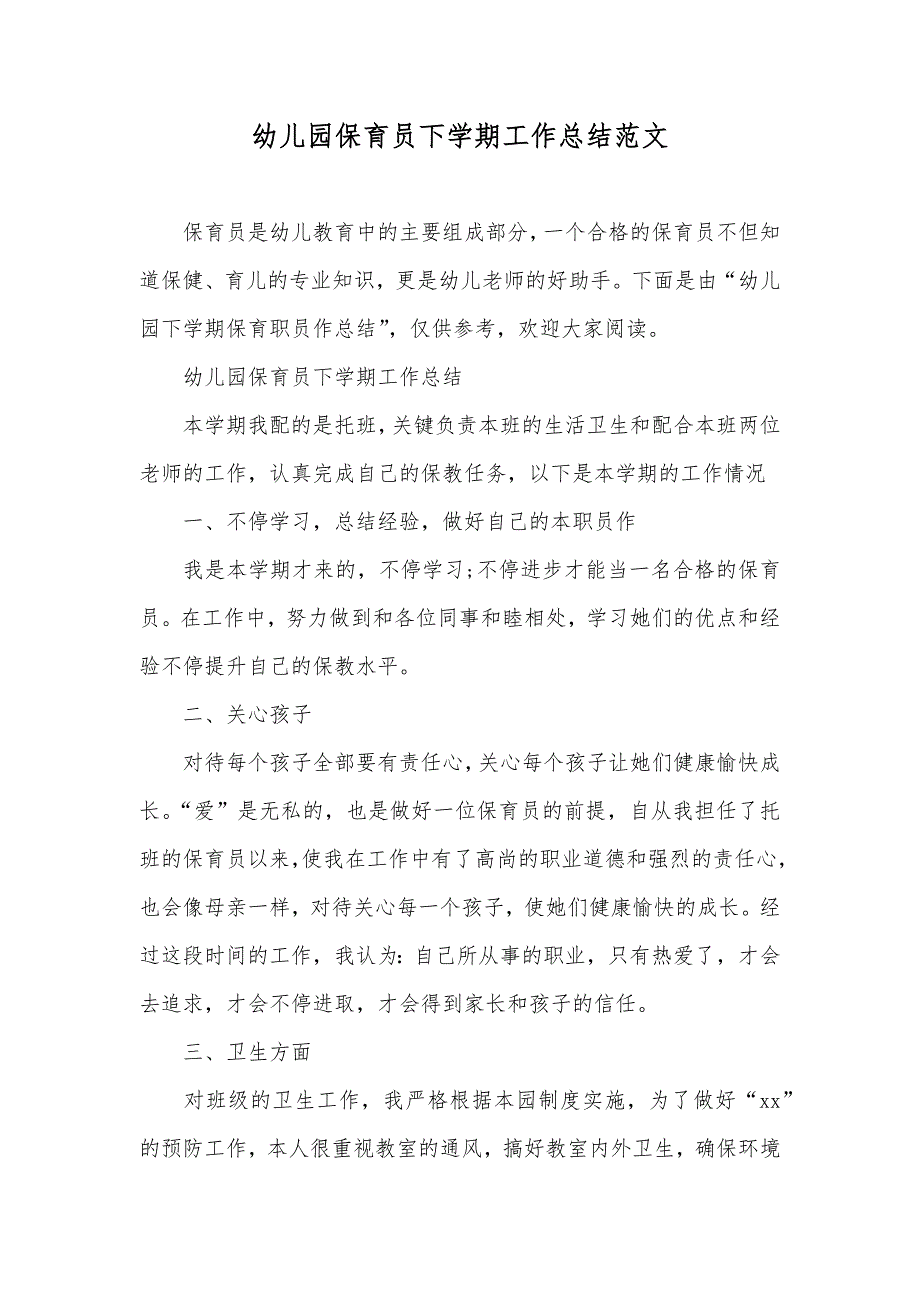 幼儿园保育员下学期工作总结范文
保育员是幼儿教育中的主要组成部分，一个合格的保育员不但知
道保健、育儿的专业知识，更是幼儿老师的好助手。下面是由“幼儿
园下学期保育职员作总结”，仅供参考，欢迎大家阅读。
幼儿园保育员下学期工作总结
本学期我配的是托班，关键负责本班的生活卫生和配合本班两位
老师的工作，认真完成自己的保教任务，以下是本学期的工作情况
一、不停学习，总结经验，做好自己的本职员作
我是本学期才来的，不停学习;不停进步才能当一名合格的保育
员。在工作中，努力做到和各位同事和睦相处，学习她们的优点和经
验不停提升自己的保教水平。
二、关心孩子
对待每个孩子全部要有责任心，关心每个孩子让她们健康愉快成
长。“爱”是无私的，也是做好一位保育员的前提，自从我担任了托
班的保育员以来，使我在工作中有了高尚的职业道德和强烈的责任心，
也会像母亲一样，对待关心每一个孩子，使她们健康愉快的成长。经
过这段时间的工作，我认为：自己所从事的职业，只有热爱了，才会
去追求，才会不停进取，才会得到家长和孩子的信任。
三、卫生方面
对班级的卫生工作，我严格根据本园制度实施，为了做好“xx”
的预防工作，本人很重视教室的通风，搞好教室内外卫生，确保环境